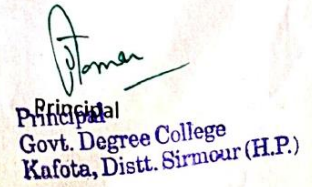 Tomar
Principal
Principal
Govt. Degree College
Kafota, Distt. Sirmour (H.P.)